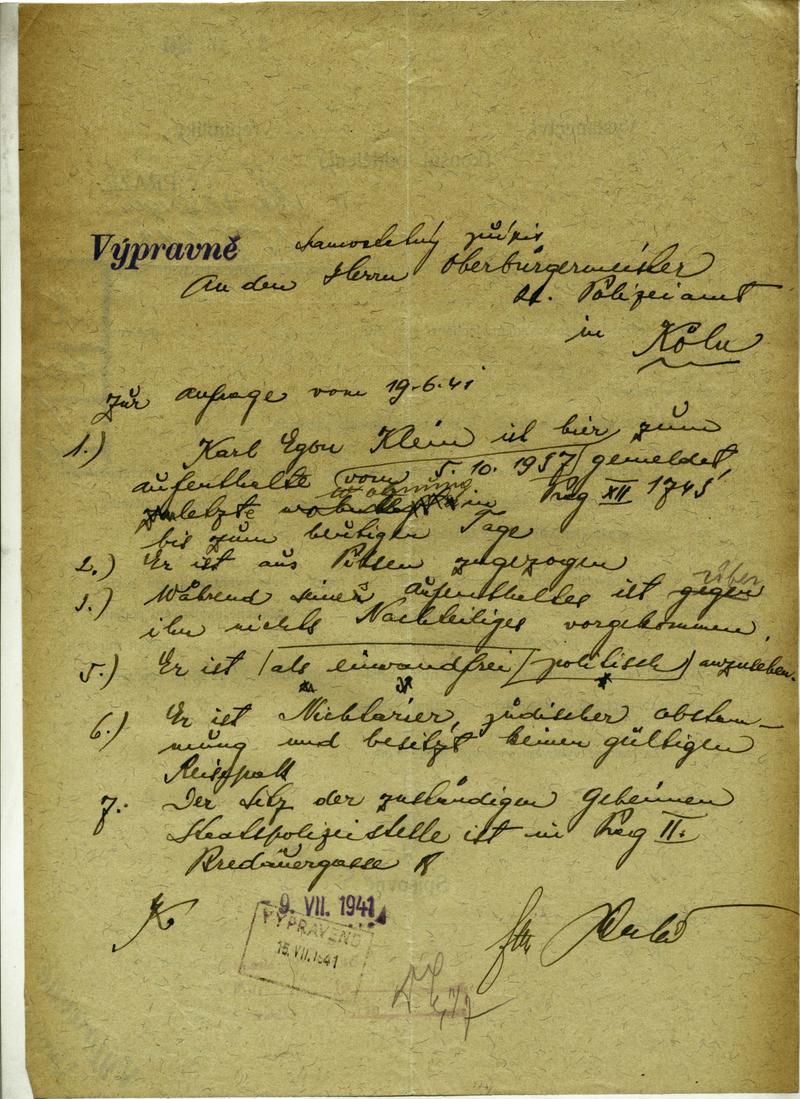 Výpravně
An den Herrn Oberbürgermeister
Polizeiamt
in Köln
zur Anfrage vom 19.6.41
1.) Karl Egon Klein ist hier zum
aufenthalte vom 5. 10. 1937 gemeldet,
wohnung
zuletzt in Prag XII 1745
bis zum heutigen Tage
2.) Er ist aus Pilsen zugezogen
über
3.) Während seines Aufenthaltes ist gegen
ihn nichts Nachteiliges vorgekommen,
5.) Er ist als einwandfrei politisch anzusehen.
6.) Er ist Nichtarier, jüdischer abstam-
mung und besitzt keinen gültigen
Reisepaß
7. Der Sitz der zuständigen Geheimen
Staatspolizeistelle ist in Prag II.
Bredauergasse
K
- 9. VII. 1941
VYPRAVENO
15. VII. 1941